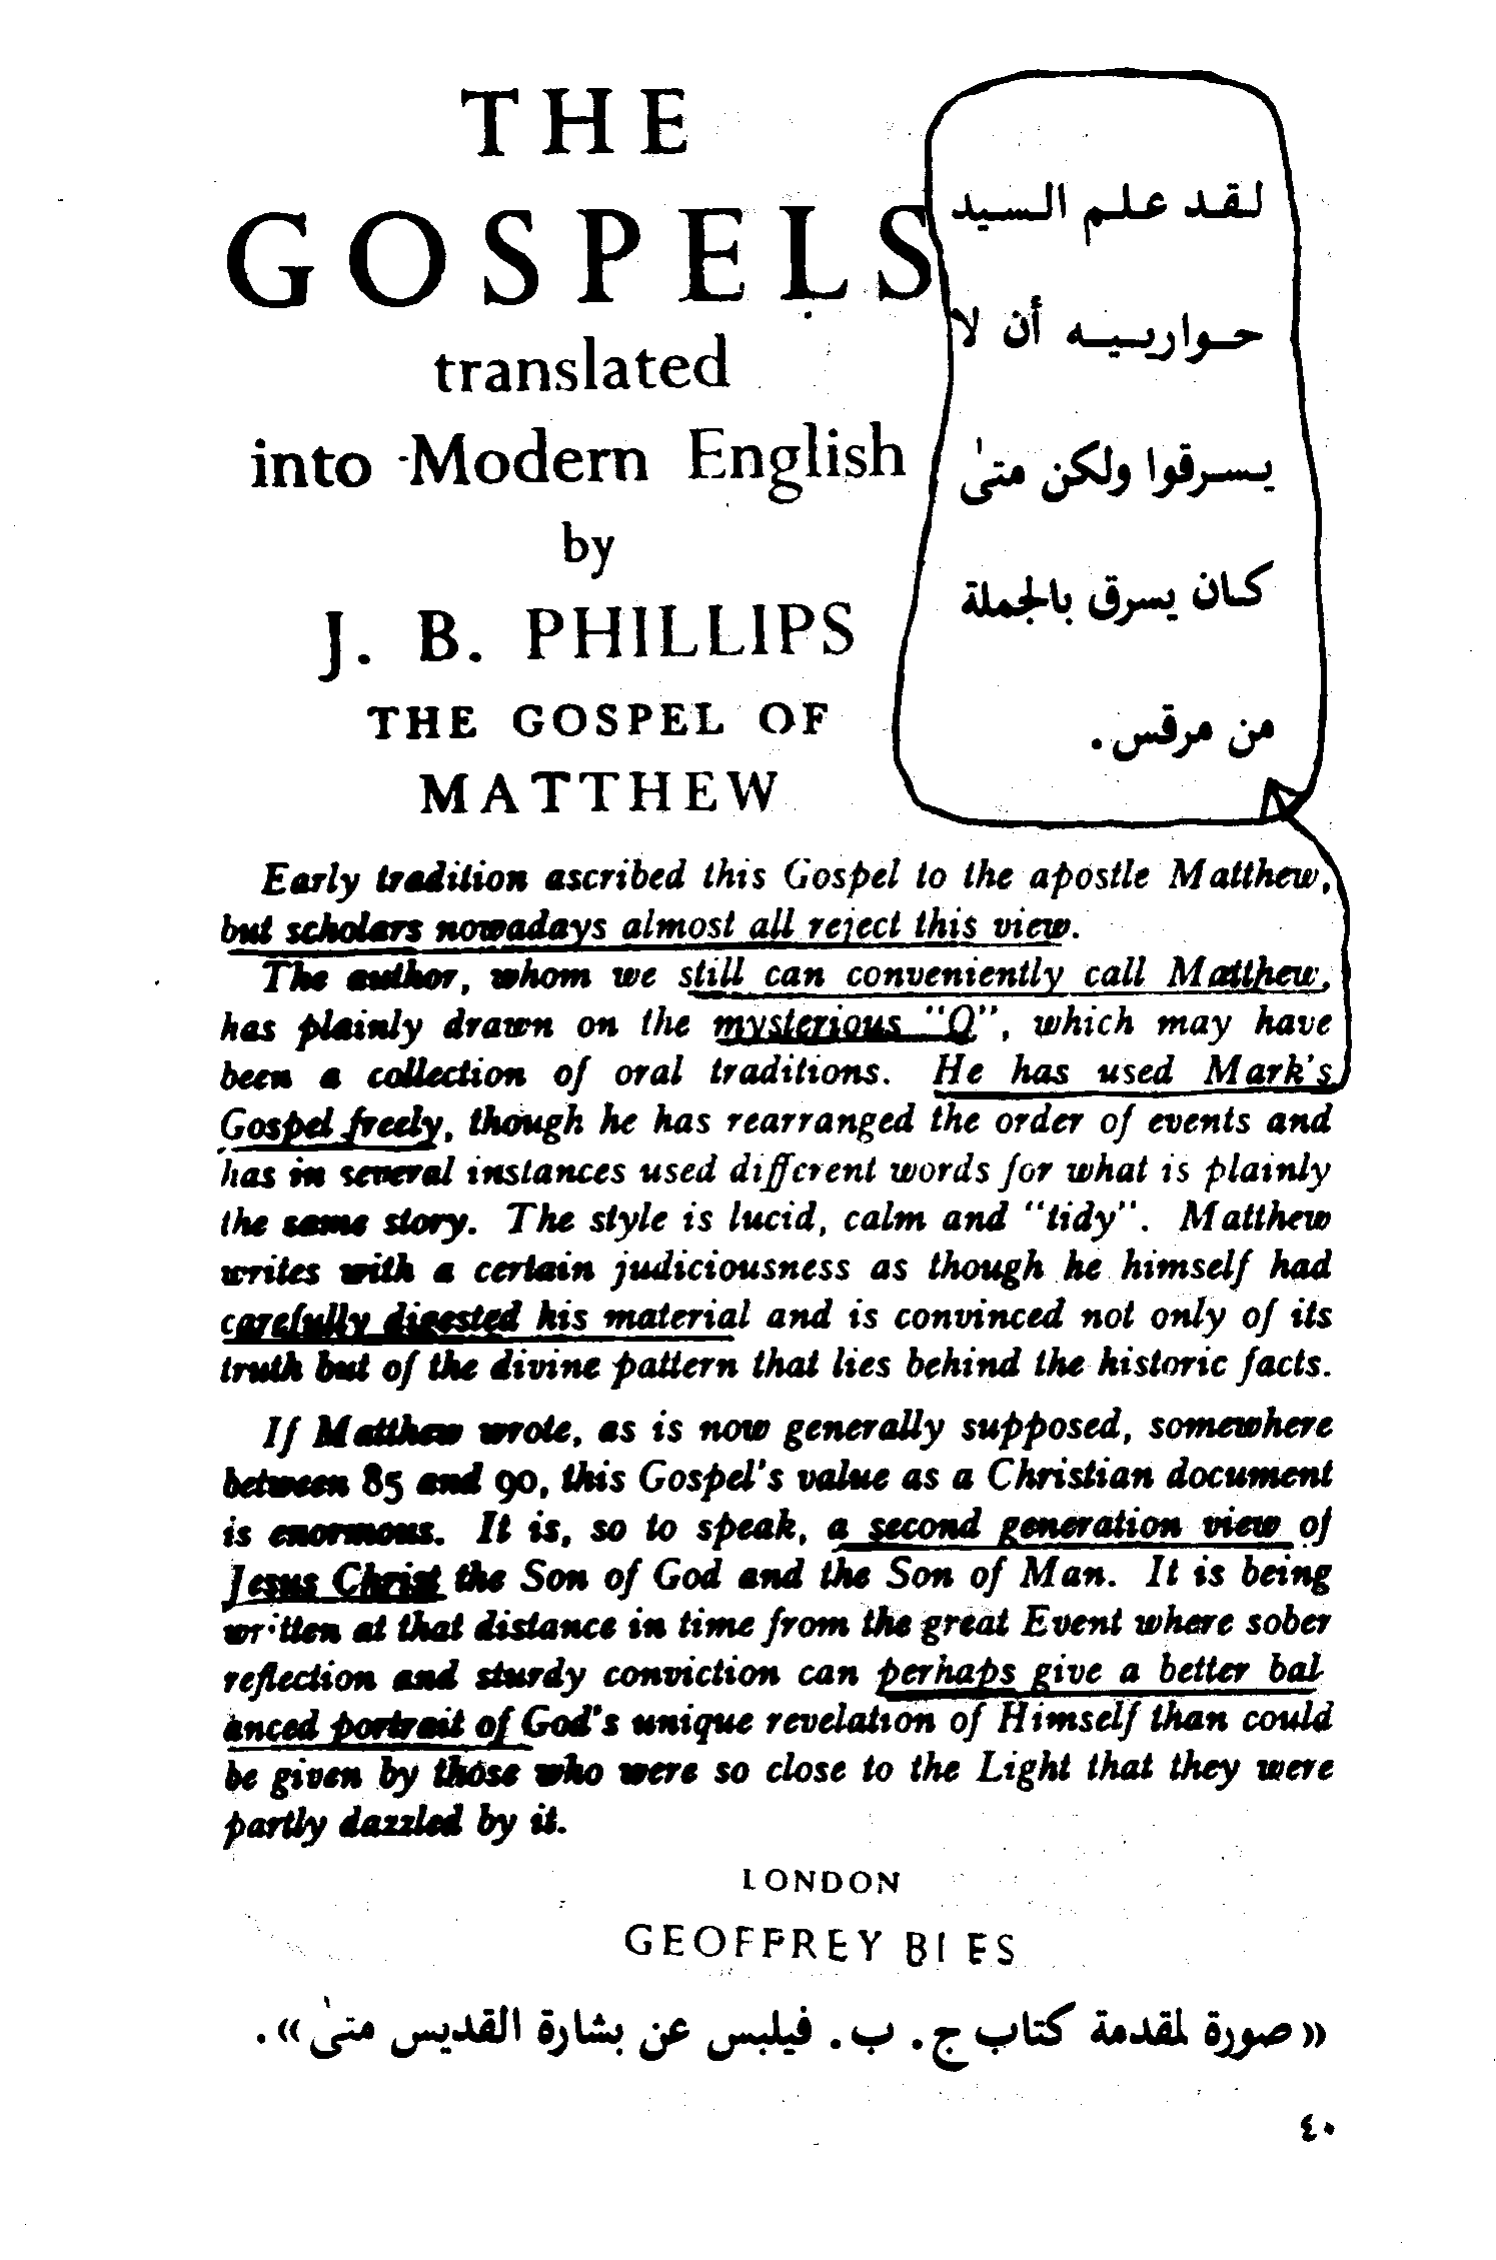 THE
GOSPELS
translated
into Modern English
by
J. B. PHILLIPS
THE GOSPEL OF
MATTHEW
لقد علم السيد
حواريـيـه أن لا
يسرقوا ولكن متىٰ
كان يسرق بالجملة
من مرقس .
Early tradition ascribed this Gospel to the apostle Matthew,
but scholars nowadays almost all reject this view.
The author, whom we still can conveniently call Matthew,
has plainly drawn on the mysterious "Q", which may have
been a collection of oral traditions. He has used Mark's
Gospel freely, though he has rearranged the order of events and
has in several instances used different words for what is plainly
the same story. The style is lucid, calm and "tidy". Matthew
writes with a certain judiciousness as though he himself had
carefully digested his material and is convinced not only of its
truth but of the divine pattern that lies behind the historic facts.
If Matthew wrote, as is now generally supposed, somewhere
between 85 and 90, this Gospel's value as a Christian document
is enormous. It is, so to speak, a second generation view of
Jesus Christ the Son of God and the Son of Man. It is being
written at that distance in time from the great Event where sober
reflection and sturdy conviction can perhaps give a better bal
anced portrait of God's unique revelation of Himself than could
be given by those who were so close to the Light that they were
partly dazzled by it.
LONDON
GEOFFREY BLES
« صورة لمقدمة كتاب ج . ب . فيلبس عن بشارة القديس متىٰ » .
٤٠